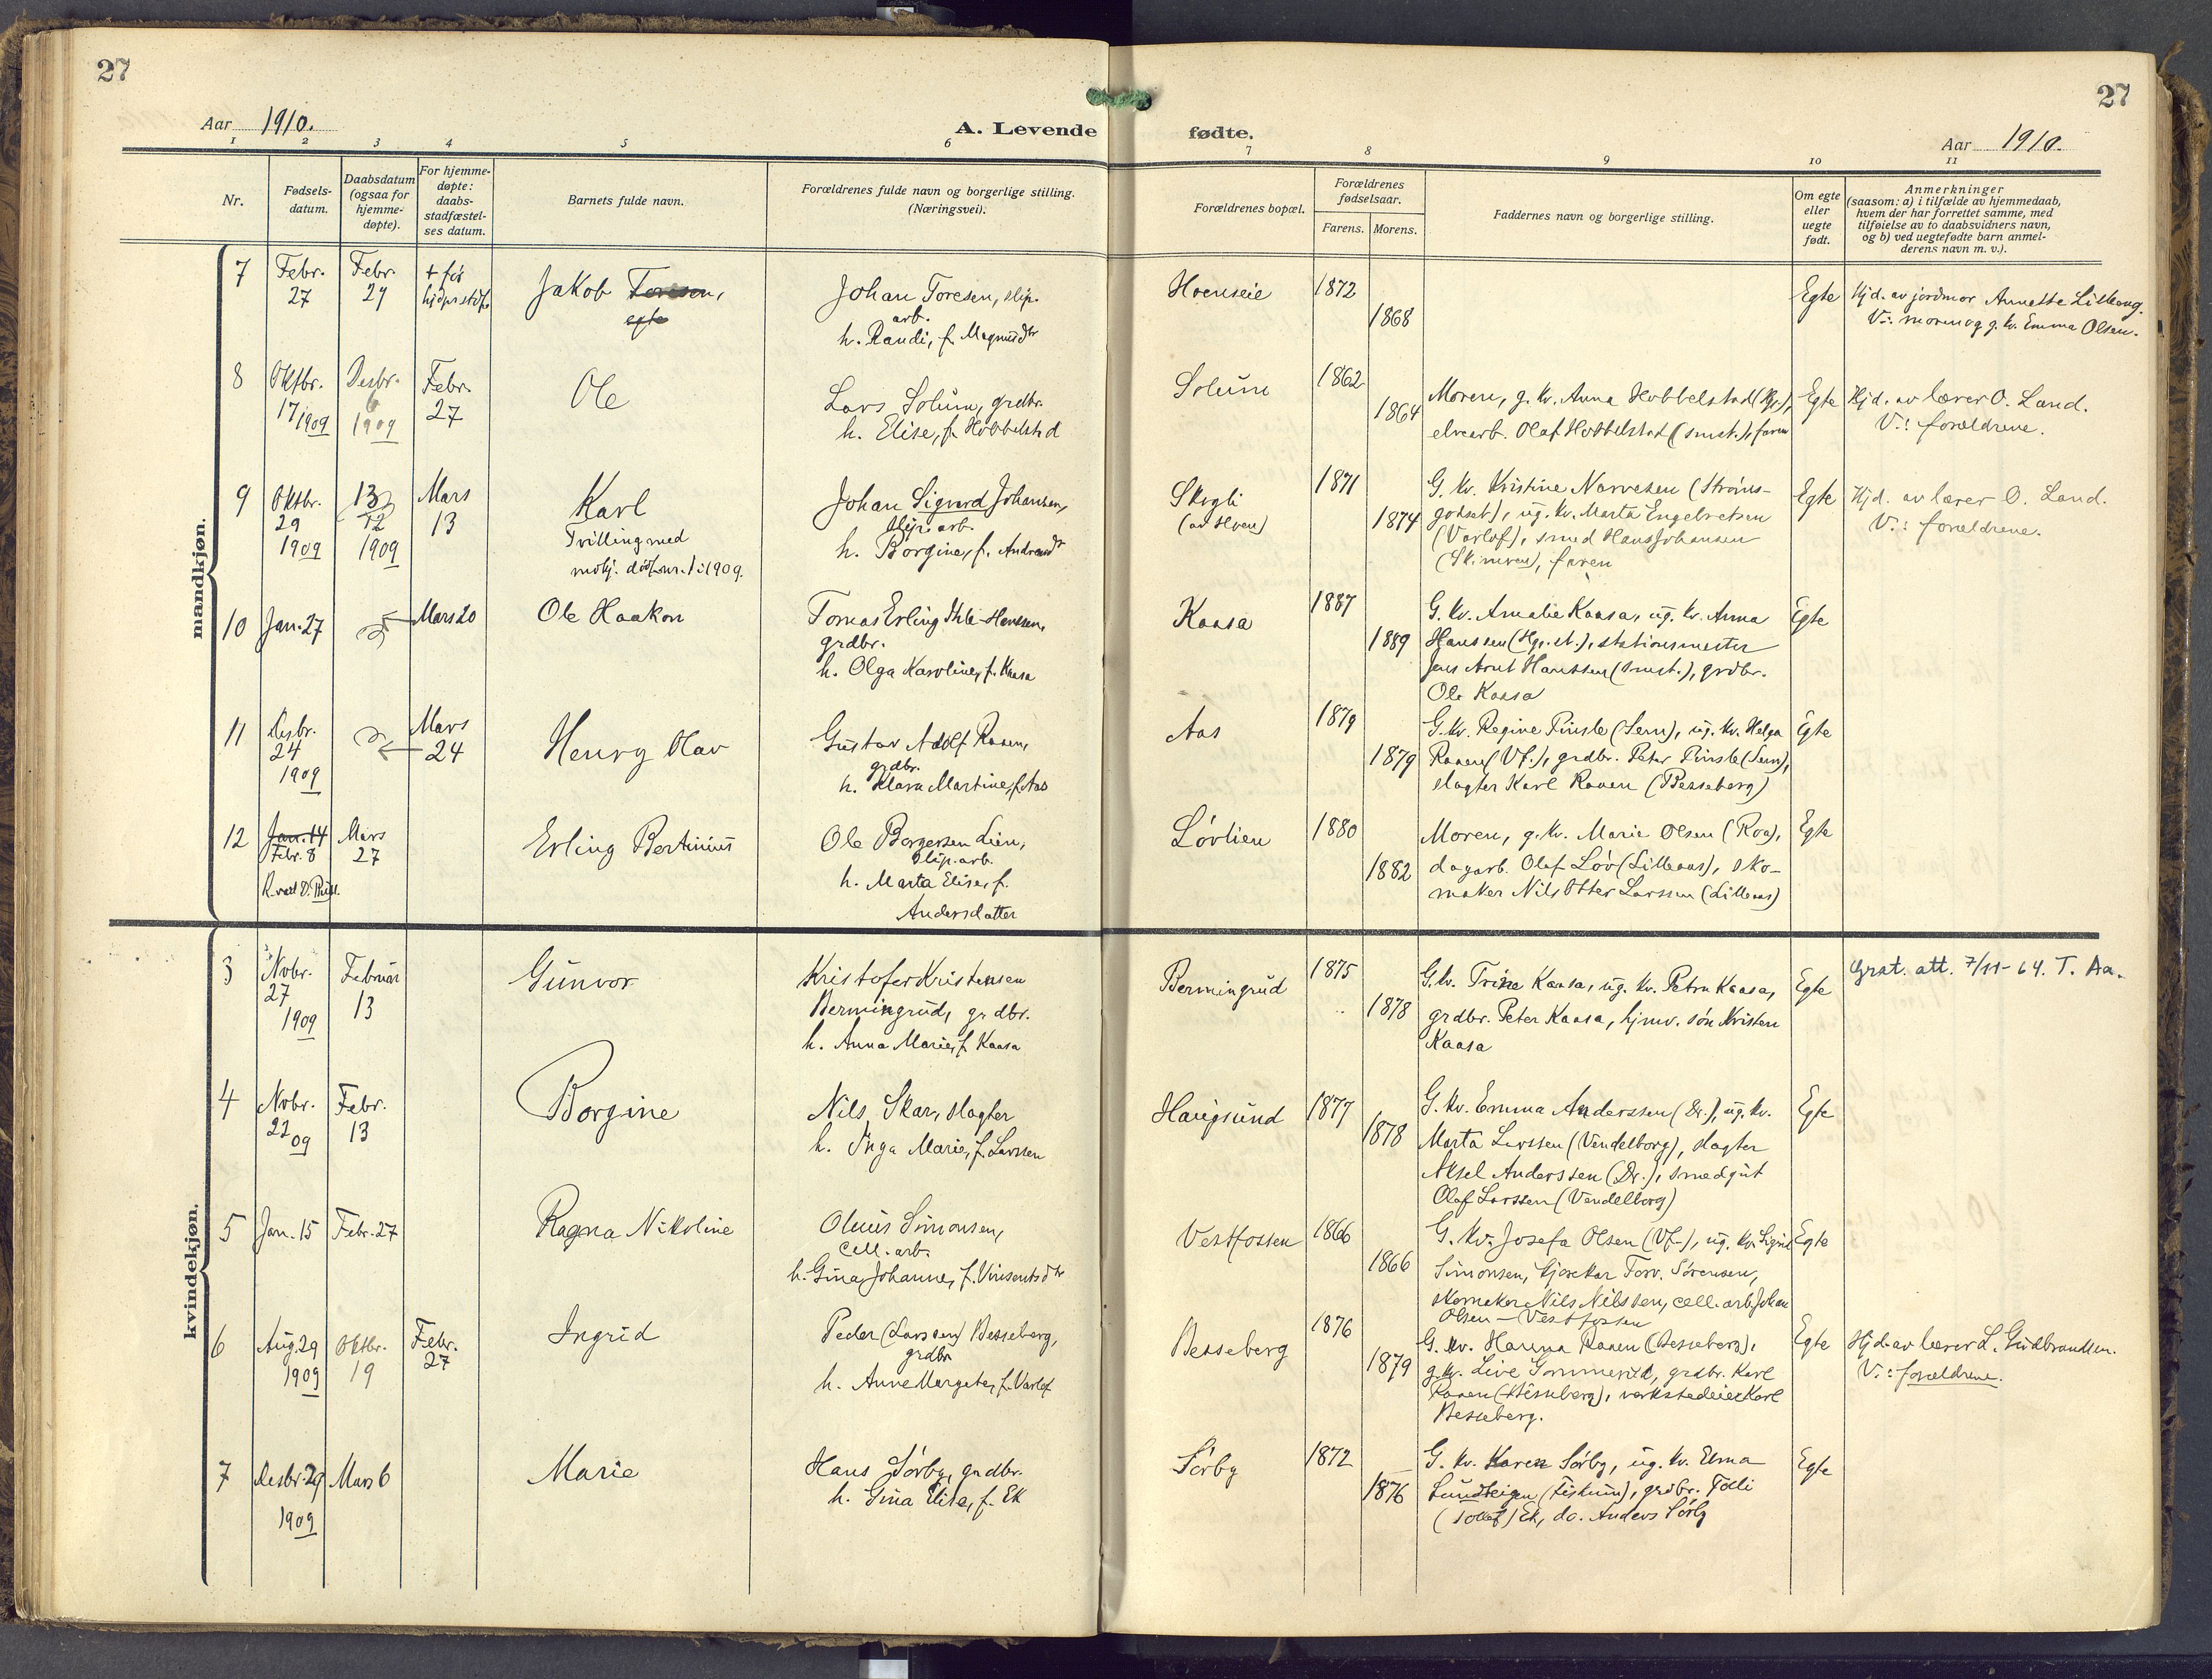 27
27
Aar 1910.
A. Levende fødte.
Aar 1910.
1 2 3 4 5 6 7 8 9 10 11
Nr.
Fødsels-
datum.
Daabsdatum
(ogsaa for
hjemme-
døpte).
For hjemme-
døpte:
daabs-
stadfæstel-
ses datum.
Barnets fulde navn.
Forældrenes fulde navn og borgerlige stilling.
(Næringsvei).
Forældrenes bopæl.
Forældrenes
fødselsaar.
Farens. Morens.
Faddernes navn og borgerlige stilling.
Om egte
eller
uegte
født.
Anmerkninger
(saasom: a) i tilfælde av hjemmedaab,
hvem der har forrettet samme, med
tilføielse av to daabsvidners navn,
og b) ved uegtefødte barn anmel-
derens navn m. v.).
mandkjøn.
7
Febr.
27
Febr.
29
+ før
Jakob Toresen,
egte
Johan Toresen, slip.
arb.
h. Randi, f. Magnusdtr
Hoenseie
1872
1868
Egte
Hjd. av jordmor Annette Lilleeng.
V.: moren og g. kv. Emma Olsen.
8
Oktbr.
17/1909
Desbr.
6
1909
Febr.
27
Ole
Lars Solum, grdbr.
h. Elise, f. Hobbelstad
Solum
1862
1864
Moren, g. kv. Anna Hobbelstad
elvearb. Olaf Hobbelstad (smst.), faren
Egte
Hjd. av lærer O. Land.
V.: forældrene.
9
Oktbr.
29
1909
13
12
1909
Mars
13
Karl
Tvilling med
dødf. nr. 1 i 1909.
Johan Sigurd Johansen,
slip. arb.
h. Borgine, f. Andreasdr
Skogli
(av Hoen)
1871
1874
G. kv. Kristine Narvesen (Strøms-
godset), ug. kv. Marta Engebretsen
(Varlof), smed Hans Johansen
faren
Egte
Hjd. av lærer O. Land.
V.: forældrene.
10
Jan. 27
Mars 20
Ole Haakon
Tomas Erling Hanssen,
grdbr.
h. Olga Karoline, f. Kaasa
Kaasa
1887
1889
G. kv. Amalie Kaasa, ug. kv. Anna
Hanssen (Hgs. st.), stationsmester
Jens Arnt Hanssen (smst.), grdbr.
Ole Kaasa
Egte
11
Desbr.
24
1909
Mars
24
Henry Olav
Gustav Adolf Raaen,
grdbr.
h. Klara Martine, f. Aas
Aas
1879
1879
G. kv. Regine Pinsle (Sem), ug. kv. Helga
Raaen (Vf.), grdbr. Peter Pinsle (Sem),
slagter Karl Raaen (Besseberg)
Egte
12
Jan. 14
Febr. 8
Mars
27
Erling Bertinius
Ole Borgersen Lien,
slip. arb.
h. Marta Elise, f.
Andersdatter
Løvlien
1880
1882
Moren, g. kv. Marie Olsen (Roa),
dagarb. Olaf Løv (Lilleaas), sko-
maker Nils Otter Larssen (Lilleaas)
Egte
kvindekjøn.
3
Novbr.
27
1909
Februar
13
Gunvor
Kristofer Kristensen
Bermingrud, grdbr.
h. Anna Marie, f. Kaasa
Bermingrud
1875
1878
G. kv. Trine Kaasa, ug. kv. Petra Kaasa,
grdbr. Peter Kaasa, hjmv. søn Kristen
Kaasa
Egte
Grat. att. 7/11-64. T. Aa.
4
Novbr.
22 09
Febr.
13
Borgine
Nils Skar, slagter
h. Inga Marie, f. Larssen
Haugsund
1877
1878
G. kv. Emma Anderssen (Dr.), ug. kv.
Marta Larssen (Vendelborg), slagter
Aksel Anderssen (Dr.), smedgut
Olaf Larssen (Vendelborg)
Egte
5
Jan. 15
Febr. 27
Ragna Nikoline
Oluis Simonsen,
cell. arb.
h. Gina Johanne, f. Vinsentsdtr
Vestfossen
1866
1866
G. kv. Josefa Olsen (Vf.), ug. kv. Sigrid
Simonsen, Torv. Sørensen,
skomaker Nils Nilssen, cell. arb. Johan
Olsen – Vestfossen
Egte
6
Aug. 29
1909
Oktbr.
19
Febr.
27
Ingrid
Peder (Larssen) Besseberg,
grdbr
h. Anne Margrete, f. Varlof
Besseberg
1876
1879
G. kv. Hanna Raaen (Besseberg),
g. kv. Live Gommerud, grdbr. Karl
Raaen, verkstedeier Karl
Besseberg.
Egte
Hjd. av lærer L. Gudbrandsen.
V.: forældrene.
7
Desbr. 29
1909
Mars 6
Marie
Hans Sørby, grdbr.
h. Gina Elise, f. Ek
Sørby
1872
1876
G. kv. Karen Sørby, ug. kv. Elma
Lundteigen (Fiskum), grdbr. Tolli
Ek, do. Anders Sørby
Egte